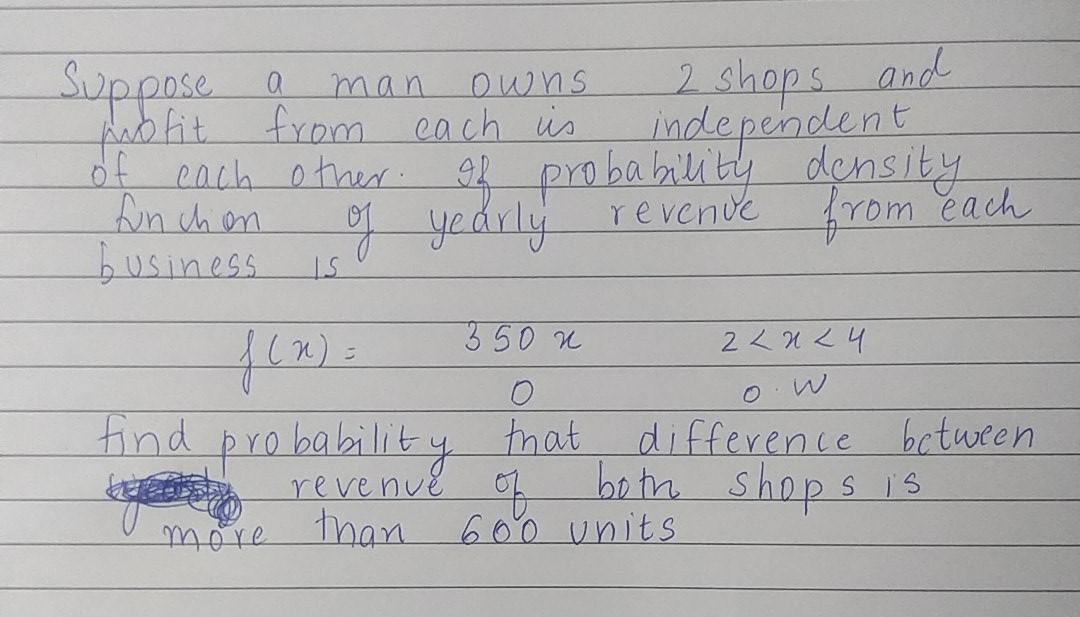 Suppose a man owns 2 shops and
profit from each is independent
of each other. If probability density
function of yearly revenue from each
business is
f(x) = 350 x 2 < x < 4
0 0.W
find probability that difference between
revenue of both shops is
more than 600 units